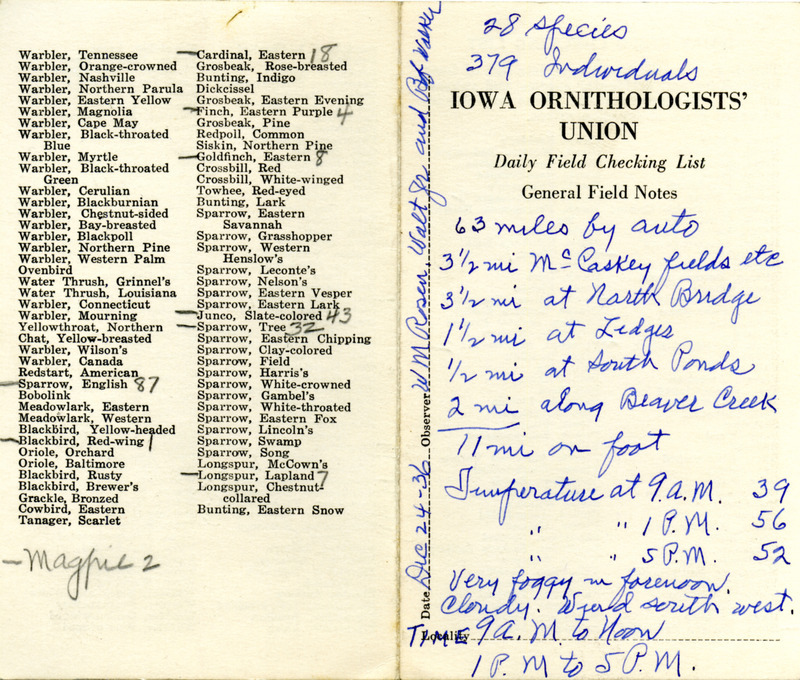 Warbler, Tennessee
Warbler, Orange-crowned
Warbler, Nashville
Warbler, Northern Parula
Warbler, Eastern Yellow
Warbler, Magnolia
Warbler, Cape May
Warbler, Black-throated
Blue
Warbler, Myrtle
Warbler, Black-throated
Green
Warbler, Cerulian
Warbler, Blackburnian
Warbler, Chestnut-sided
Warbler, Bay-breasted
Warbler, Blackpoll
Warbler, Northern Pine
Warbler, Western Palm
Ovenbird
Water Thrush, Grinnel's
Water Thrush, Louisiana
Warbler, Connecticut
Warbler, Mourning
Yellowthroat, Northern
Chat, Yellow-breasted
Warbler, Wilson's
Warbler, Canada
Redstart, American
Sparrow, English 87
Bobolink
Meadowlark, Eastern
Meadowlark, Western
Blackbird, Yellow-headed
Blackbird, Red-wing 1
Oriole, Orchard
Oriole, Baltimore
Blackbird, Rusty
Blackbird, Brewer's
Grackle, Bronzed
Cowbird, Eastern
Tanager, Scarlet
– Magpie 2
Cardinal, Eastern 18
Grosbeak, Rose-breasted
Bunting, Indigo
Dickcissel
Grosbeak, Eastern Evening
Finch, Eastern Purple 4
Grosbeak, Pine
Redpoll, Common
Siskin, Northern Pine
Goldfinch, Eastern 8
Crossbill, Red
Crossbill, White-winged
Towhee, Red-eyed
Bunting, Lark
Sparrow, Eastern
Savannah
Sparrow, Grasshopper
Sparrow, Western
Henslow's
Sparrow, Leconte's
Sparrow, Nelson's
Sparrow, Eastern Vesper
Sparrow, Eastern Lark
Junco, Slate-colored 43
Sparrow, Tree 32
Sparrow, Eastern Chipping
Sparrow, Clay-colored
Sparrow, Field
Sparrow, Harris's
Sparrow, White-crowned
Sparrow, Gambel's
Sparrow, White-throated
Sparrow, Eastern Fox
Sparrow, Lincoln's
Sparrow, Swamp
Sparrow, Song
Longspur, McCown's
Longspur, Lapland 7
Longspur, Chestnut-
collared
Bunting, Eastern Snow
Date Dec 24-36 Observer W M Rosen Walt Jr. and Bob Walker
28 Species
379 Individuals
IOWA ORNITHOLOGISTS'
UNION
Daily Field Checking List
General Field Notes
63 miles by auto
3 1/2 mi McCaskey fields etc
3 1/2 mi at North Bridge
1 1/2 mi at Ledges
1/2 mi at South Ponds
2 mi along Beaver Creek
11 mi on foot
Temperature at 9 A.M. 39
" " 1 P.M. 56
" " 5 P.M. 52
Very foggy in forenoon.
Cloudy. Wind south west.
Locality TIME 9 A.M. to Noon
1 P.M to 5 P.M.